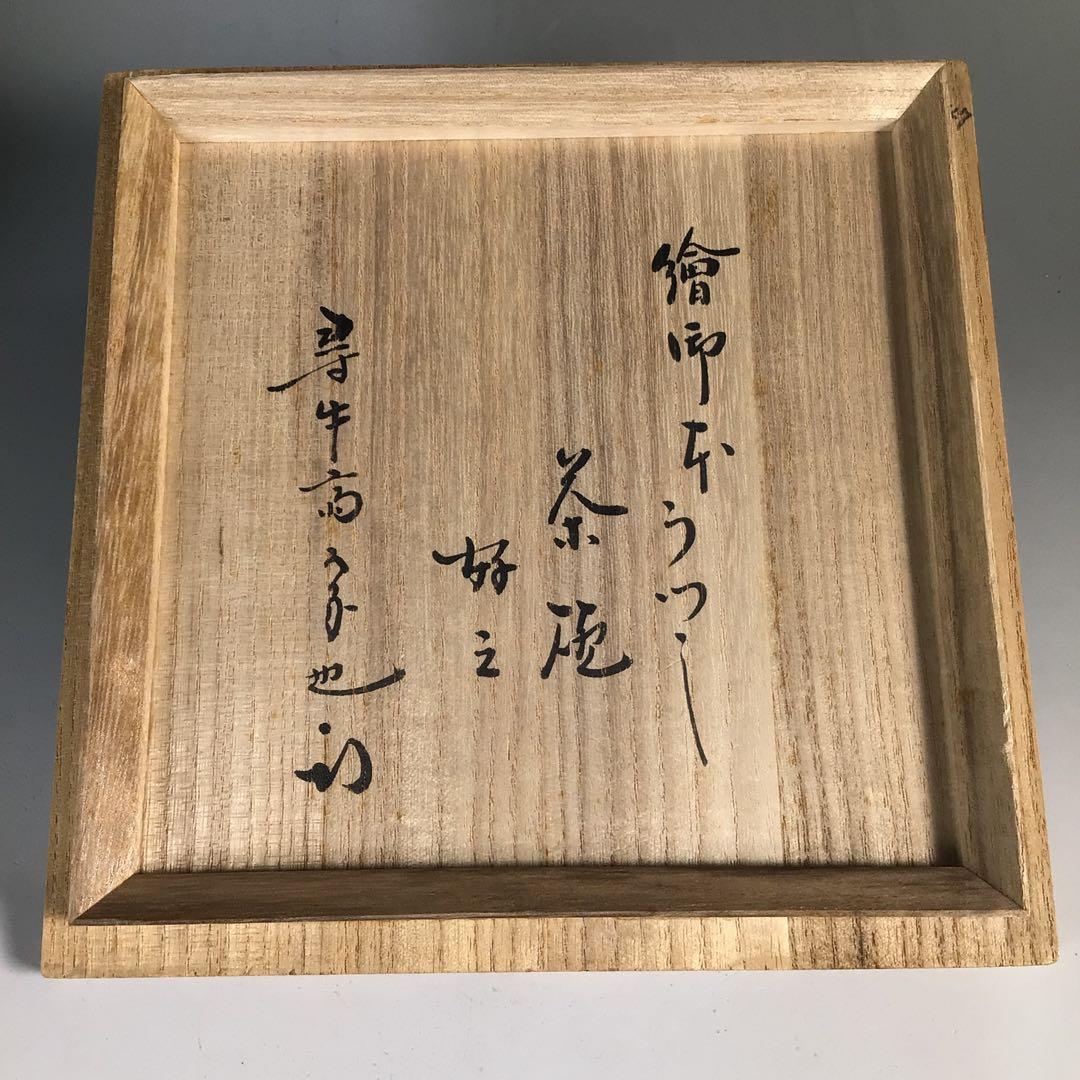 繪御本うつし
茶碗
好之
尋牛斎宗也